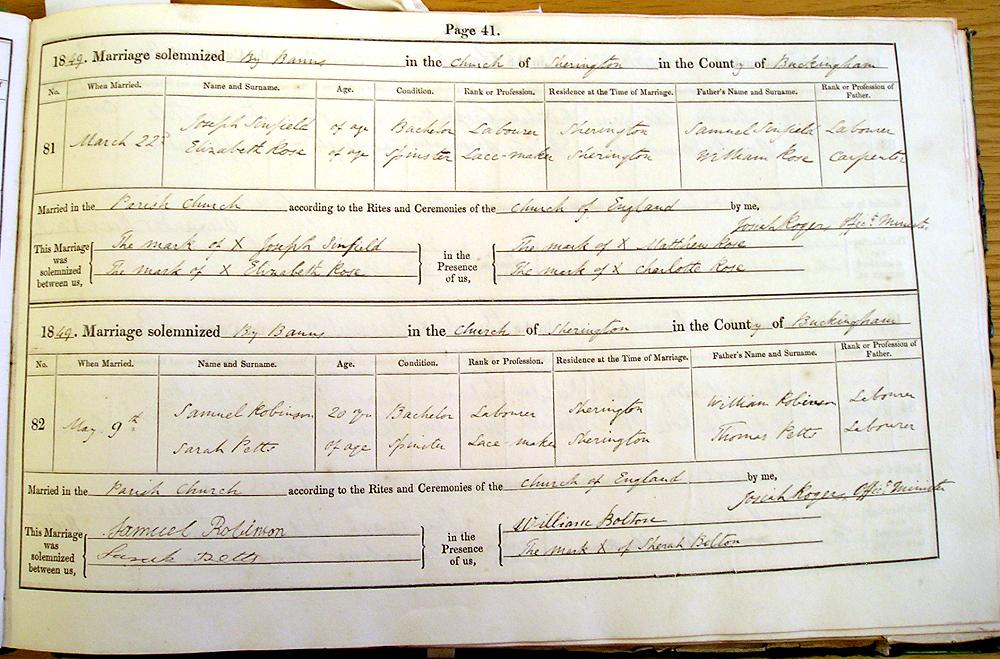 Page 41.
1849. Marriage solemnized By Banns in the Church of Sherington in the County of Buckingham
No. When Married. Name and Surname. Age. Condition. Rank or Profession. Residence at the Time of Marriage. Father's Name and Surname. Rank or Profession of Father.
Joseph Sinfield of age Bachelor Labourer Sherington Samuel Sinfield Labourer
81 March 22d
Elizabeth Rose of age Spinster Lace-maker Sherington William Rose Carpenter
Married in the Parish Church according to the Rites and Ceremonies of the Church of England by me,
Josiah Rogers Offic. Minister
This Marriage was solemnized between us, The mark of X Joseph Sinfield in the Presence of us, The mark of X Matthew Rose
The mark of X Elizabeth Rose The mark of X Charlotte Rose
1849. Marriage solemnized By Banns in the Church of Sherington in the County of Buckingham
No. When Married. Name and Surname. Age. Condition. Rank or Profession. Residence at the Time of Marriage. Father's Name and Surname. Rank or Profession of Father.
Samuel Robinson 20 yrs Bachelor Labourer Sherington William Robinson Labourer
82 May 9th
Sarah Petts of age Spinster Lace-maker Sherington Thomas Petts Labourer
Married in the Parish Church according to the Rites and Ceremonies of the Church of England by me,
Josiah Rogers Offic. Minister
This Marriage was solemnized between us, Samuel Robinson in the Presence of us, William Bolton
Sarah The mark X of Sherah Bolton